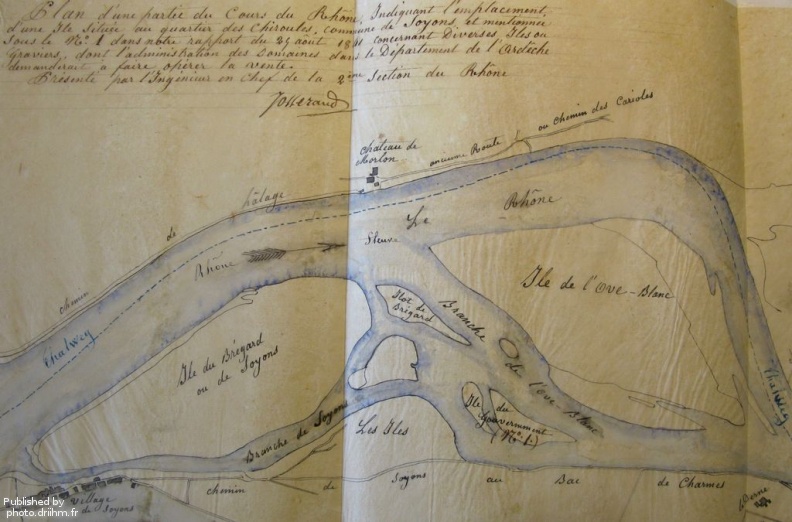 Plan d'une partie du Cours du Rhône, Indiquant l'emplacement,
d'une Ile Située au quartier des Chiroules, commune de Soyons, et mentionnée
Sous le N.º 1 dans notre rapport du 24 août concernant Diverses Iles ou
graviers, dont l'administration des Domaines dans le Département de l'Ardèche
demanderait à faire opérer la vente.
Présenté par l'Ingénieur en Chef de la 2ème Section du Rhône
chateau de
Morlon
ancienne Route ou chemin des Caréoles
chemin de hâlage
Rhône
fleuve Le Rhône
Thalweg
Ile de l'Ove-Blanc
Ilot de
Brégard
Branche de l'ove Blanc
Ile du Brégard
ou de Soyons
Branche de Soyons
Les Iles
Ile du
Gouvernement
(N.º 1.)
Thalweg
village
de Soyons
chemin de Soyons au Bac de Charmes
Published by
photo.driihm.fr